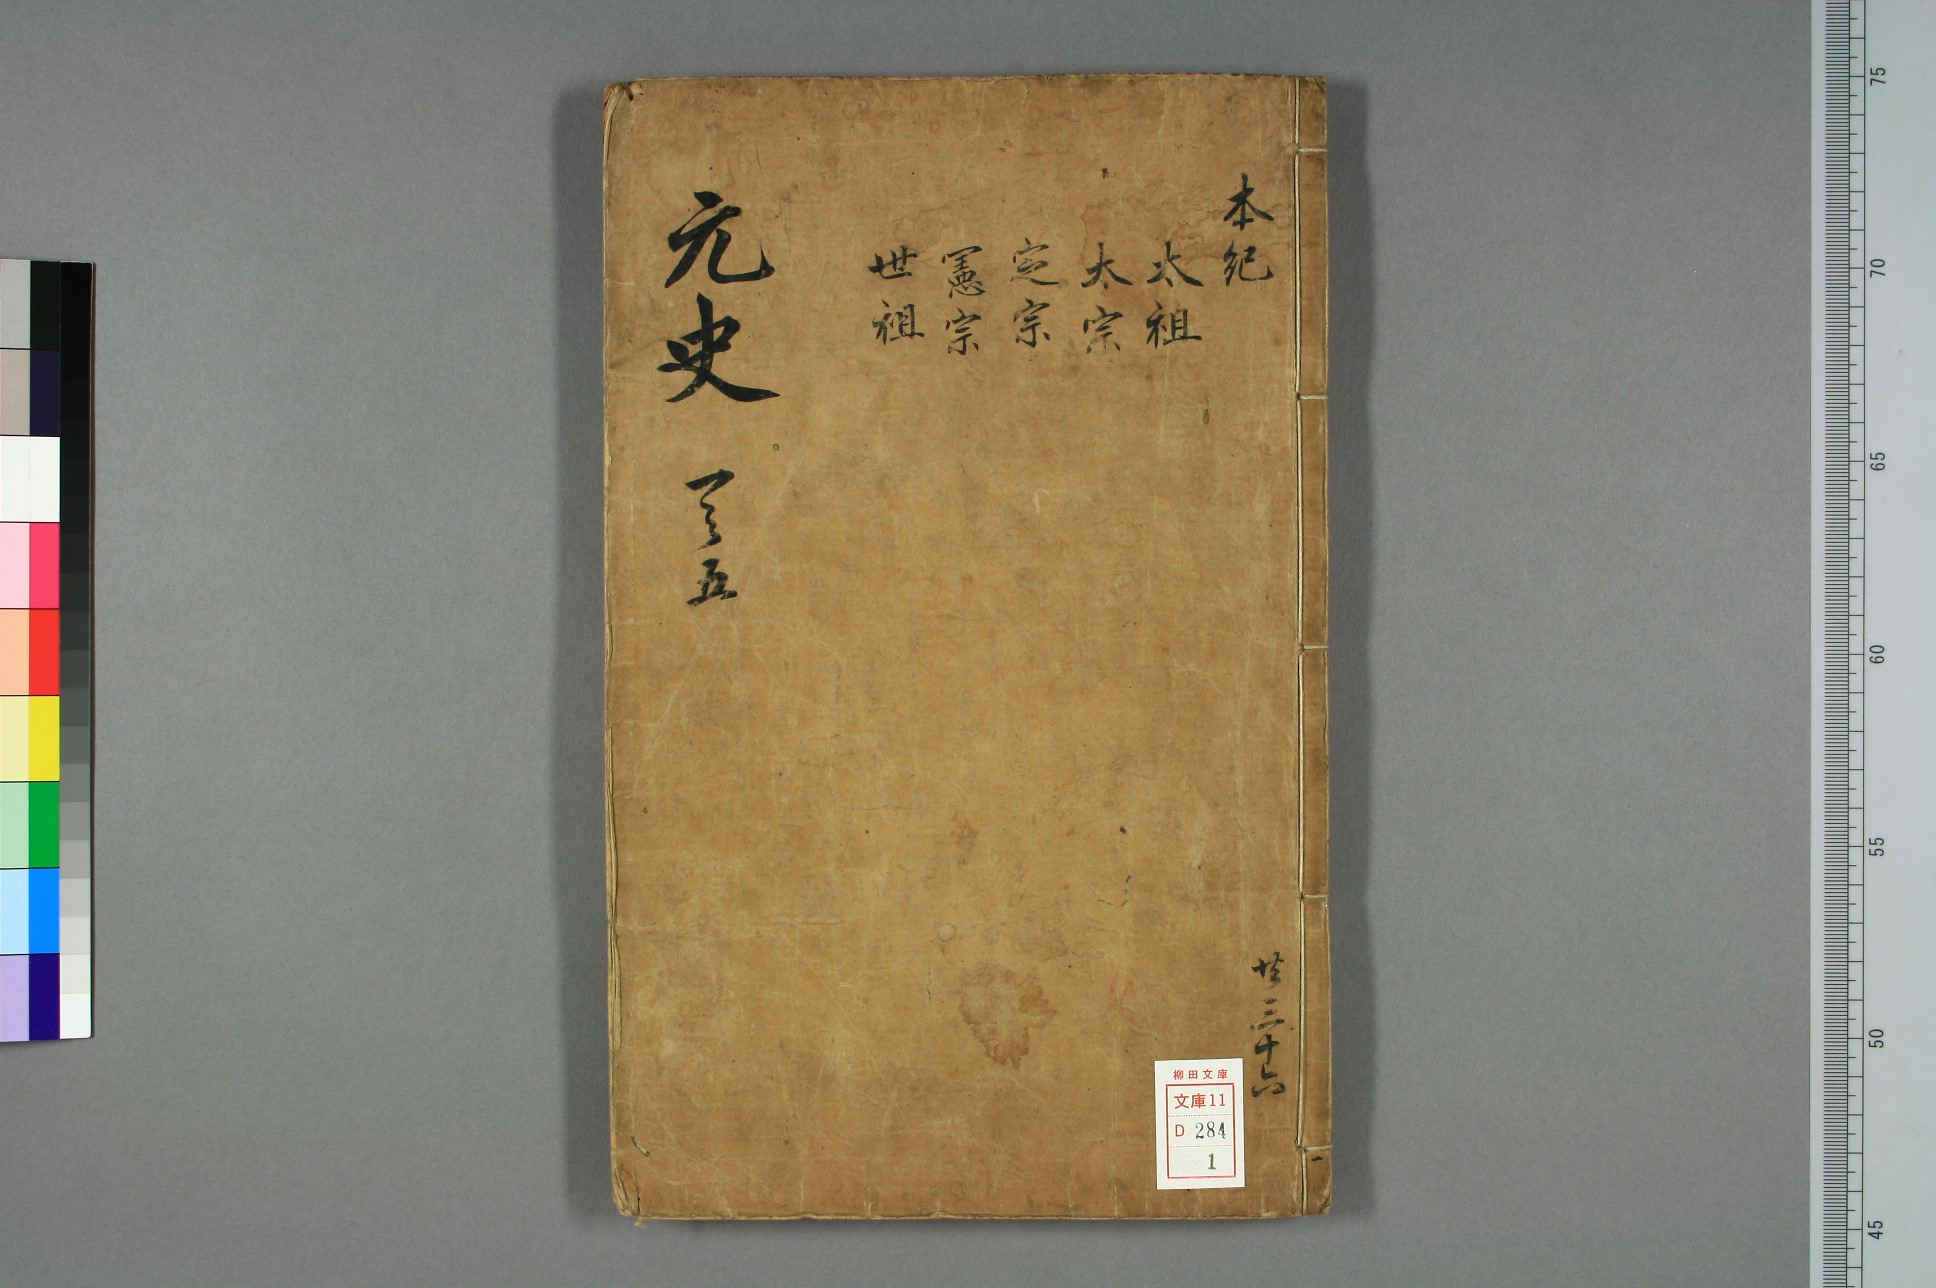 本紀
太祖
太宗
定宗
憲宗
世祖
元史 一之五
共三十六
一
柳田文庫
文庫11
D 284
1
75
70
65
60
55
50
45